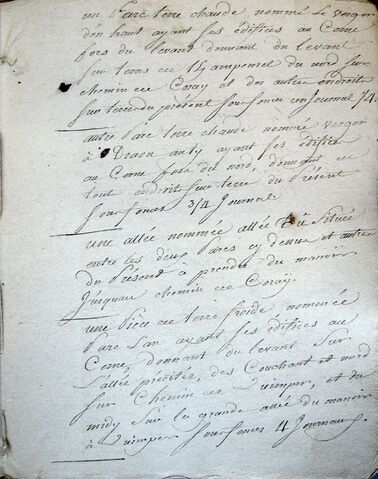 un Parc terre chaude nommé Le vergor
den haut ayant ses édifices au Cerne
fors du levant donnant du levant
sur terres de du nord sur
chemin de Coray et des autre endroits
sur terre du présent sous fonces un Journal 3/4
autre Parc terre chaude nommé vergor
à Draon anty ayant ses édifices
au Cerne fors du nord, donnant de
tout endroit sur terre du Présent
sous fonces 3/4 Journal
une allée nommée allée située
entre les deux Parcs cy denus et autre
du Présent à prendre du manoir
Jusquau chemin de Coray.
une Pièce de terre froide, nommée
Parc San ayant ses édifices au
Cerne, donnant du levant Sur
L'allée précitée, des Couchant et nord
sur Chemin de Quimper, et du
midy sur le grande allée du manoir
à Quimper sous fonces 4 Journaux.